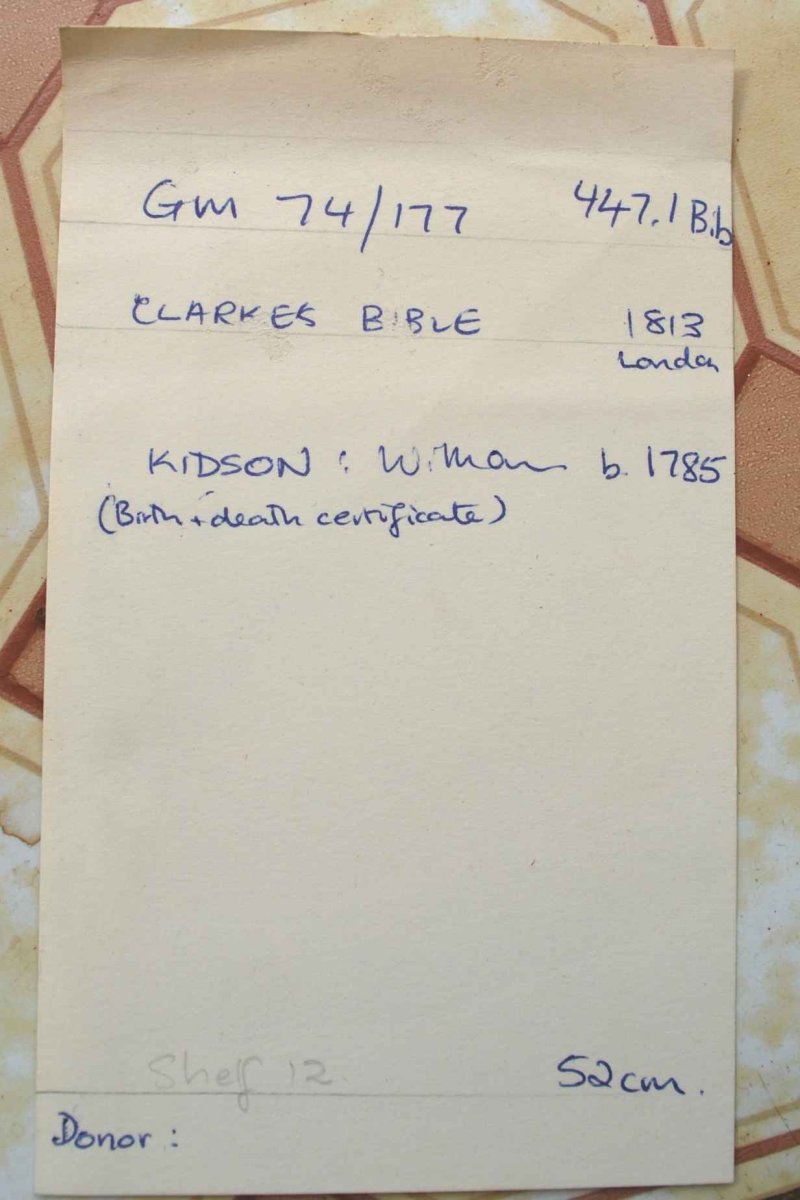 Gm 74/177 447.1 Bib
CLARKES BIBLE 1813
London
KIDSON : William b. 1785
(Birth + death certificate)
Shelf 12
52cm.
Donor :